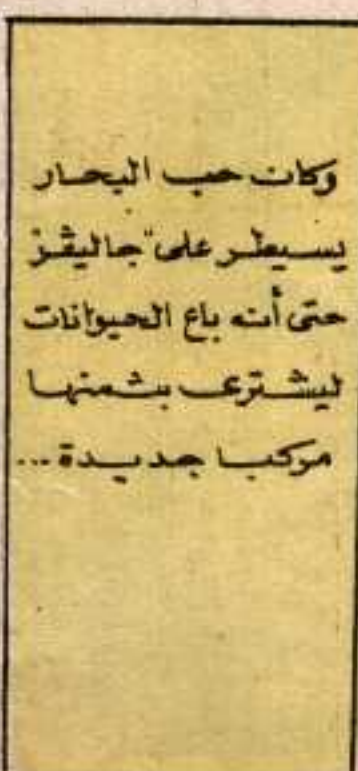 وكان حب البحار
يسيطر على "جاليڤز
حتى أنه باع الحيوانات
ليشترى بثمنها
مركبا جديدة ...